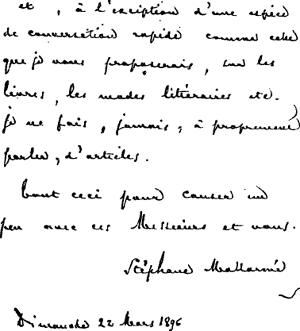 et, à l'exception d'une espèce
de conversation rapide comme celle
que je vous proposerais, sur les
livres, les modes littéraires etc.
je ne fais, jamais, à proprement
parler, d'articles.
Tout ceci pour causer un
peu avec ces Messieurs et vous.
Stéphane Mallarmé
Dimanche 22 Mars 1896